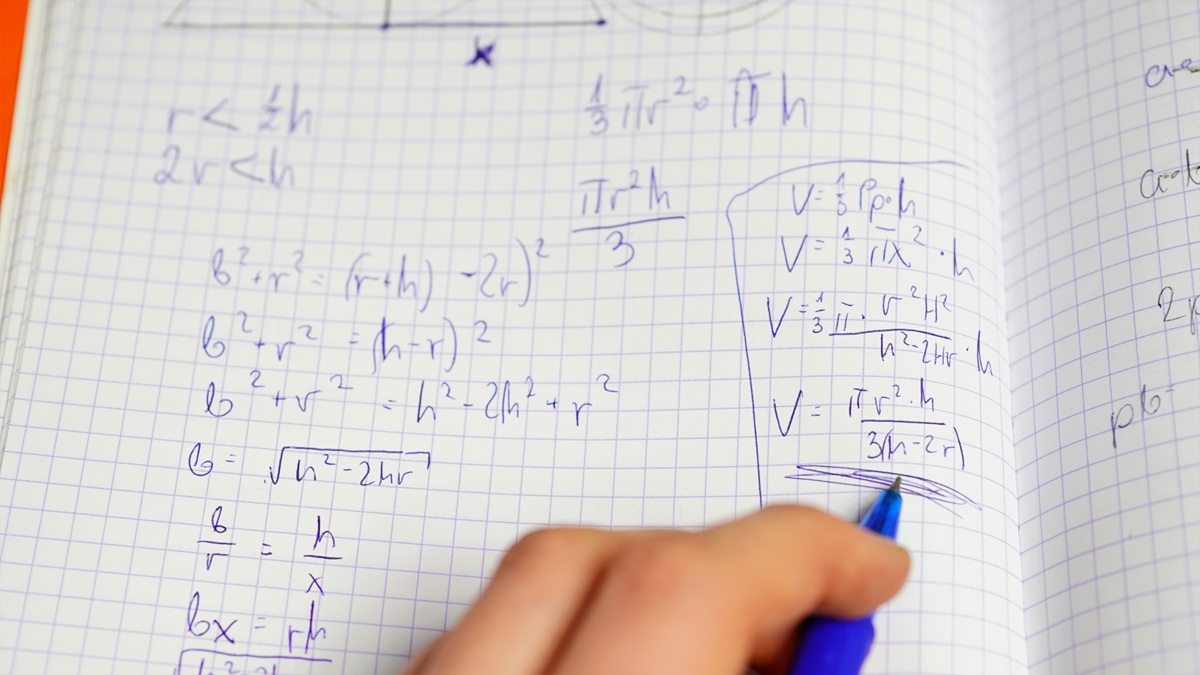 x
r < 1/2 h
2r < h
1/3 πr² · π h
πr²h / 3
b² + r² = (r+h) - 2r)²
b² + r² = (h-r)²
b² + r² = h² - 2h² + r²
b = √(h² - 2Hr)
b/r = h/x
bx = rh
V = 1/3 Pp · h
V = 1/3 πx² · h
V = 1/3 π · r²H² / h² - 2Hr · h
V = πr² · h / 3(h - 2r)